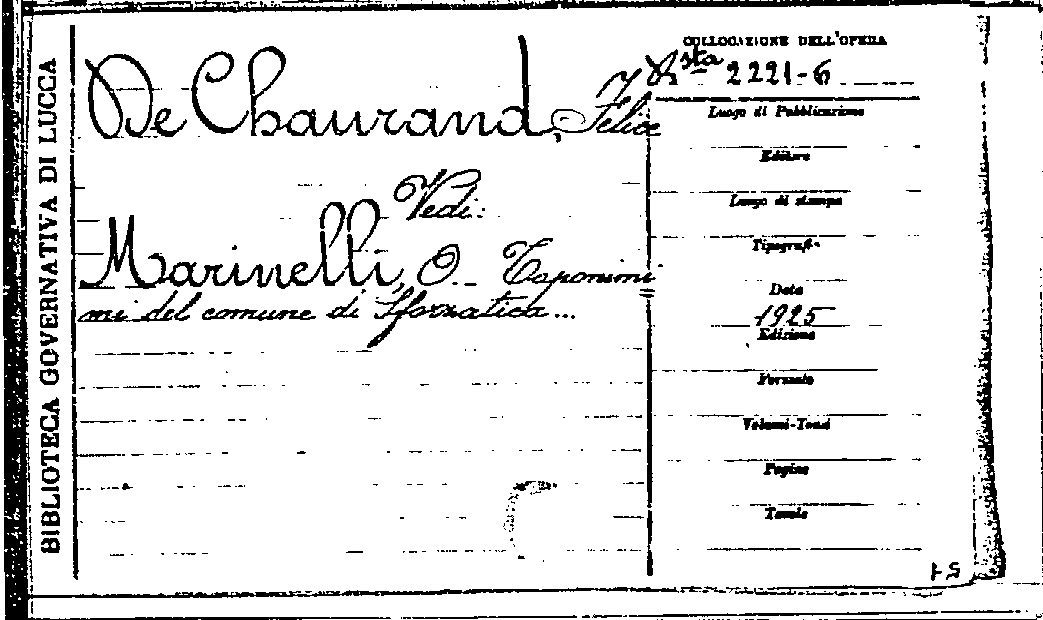 BIBLIOTECA GOVERNATIVA DI LUCCA
De Chaurand, Felice
Vedi:
Marinelli, O. Toponimi
mi del comune di Sforzatica...
COLLOCAZIONE DELL'OPERA
Bsta 2221-6
Luogo di Pubblicazione
Editore
Luogo di stampa
Tipografia
Data
1925
Edizione
Formato
Volumi-Tomi
Pagine
Tavole